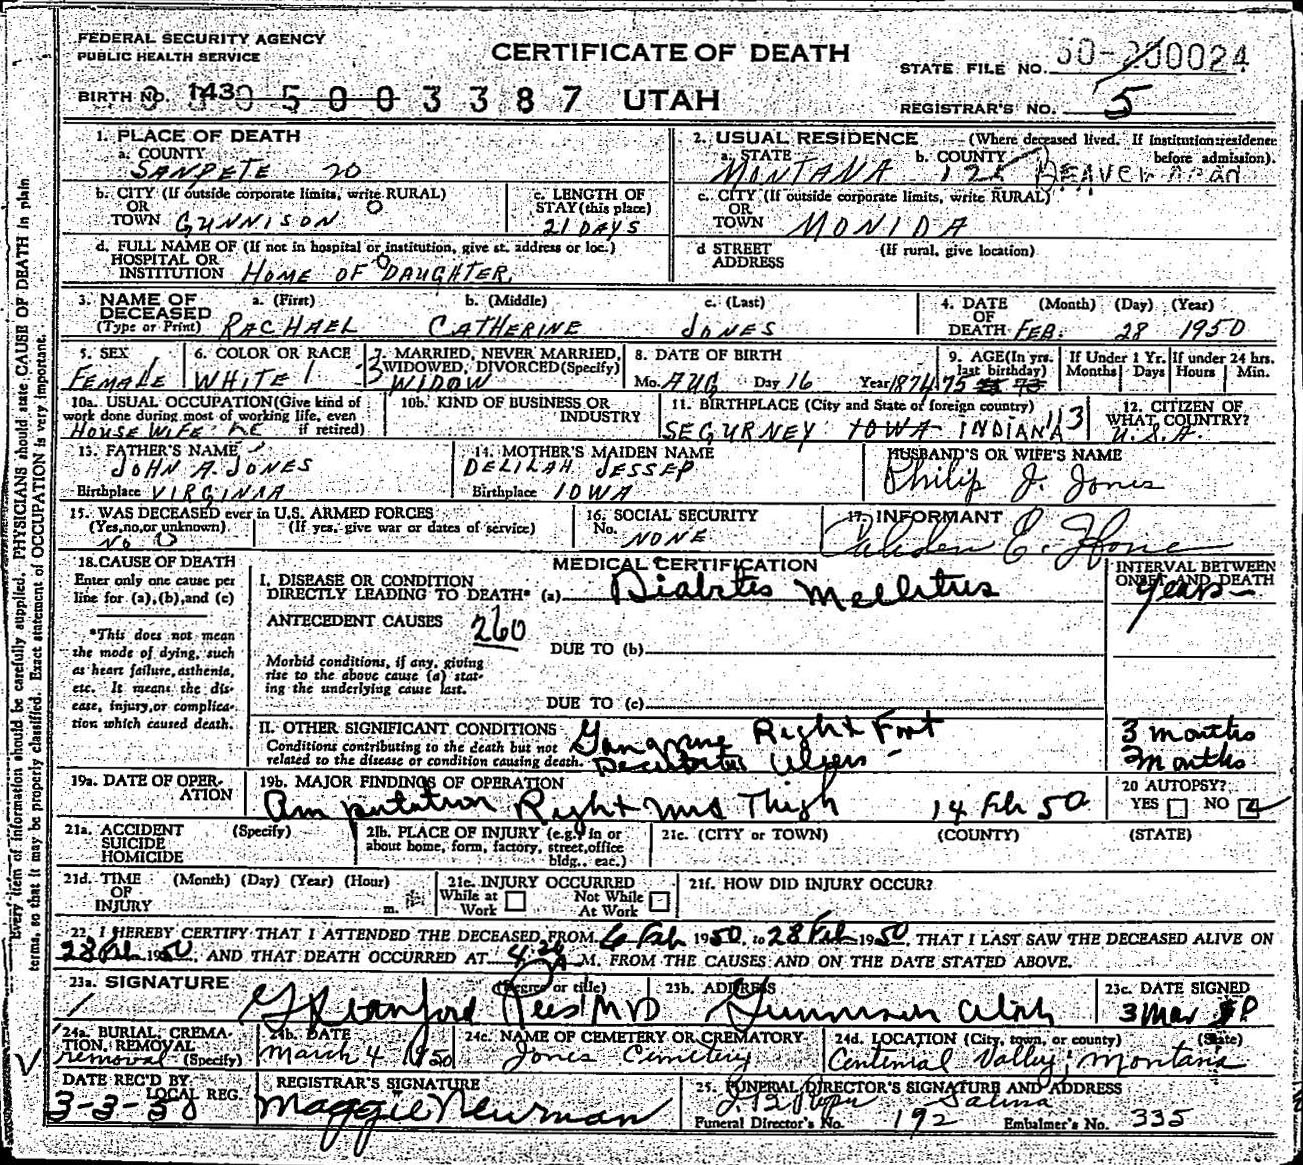 FEDERAL SECURITY AGENCY
PUBLIC HEALTH SERVICE
CERTIFICATE OF DEATH
STATE FILE NO. 50-200024
BIRTH NO. 143 0 5 0 0 3 3 8 7 UTAH
REGISTRAR'S NO. 5
Every item of information should be carefully supplied. PHYSICIANS should state CAUSE OF DEATH in plain
terms, so that it may be properly classified. Exact statement of OCCUPATION is very important.
1. PLACE OF DEATH
a. COUNTY
SANPETE 20
2. USUAL RESIDENCE (Where deceased lived. If institution: residence before admission).
a. STATE b. COUNTY
MONTANA 125 BEAVERHEAD
b. CITY (If outside corporate limits, write RURAL)
OR
TOWN GUNNISON 0
c. LENGTH OF
STAY (this place)
21 DAYS
c. CITY (If outside corporate limits, write RURAL)
OR
TOWN MONIDA
d. FULL NAME OF (If not in hospital or institution, give st. address or loc.)
HOSPITAL OR
INSTITUTION HOME OF DAUGHTER
d STREET (If rural, give location)
ADDRESS
3. NAME OF a. (First) b. (Middle) c. (Last)
DECEASED
(Type or Print) RACHAEL CATHERINE JONES
4. DATE (Month) (Day) (Year)
OF
DEATH FEB. 28 1950
5. SEX
FEMALE
6. COLOR OR RACE
WHITE 1
7. MARRIED, NEVER MARRIED,
WIDOWED, DIVORCED (Specify)
3 WIDOW
8. DATE OF BIRTH
Mo. AUG Day 16 Year 1874
9. AGE (In yrs. last birthday)
75
If Under 1 Yr.
Months Days
If under 24 hrs.
Hours Min.
10a. USUAL OCCUPATION (Give kind of
work done during most of working life, even
if retired)
HOUSEWIFE
10b. KIND OF BUSINESS OR
INDUSTRY
11. BIRTHPLACE (City and State or foreign country)
SEGURNEY IOWA INDIANA 113
12. CITIZEN OF
WHAT COUNTRY?
U.S.A.
13. FATHER'S NAME
JOHN A. JONES
Birthplace VIRGINIA
14. MOTHER'S MAIDEN NAME
DELILAH JESSEP
Birthplace IOWA
HUSBAND'S OR WIFE'S NAME
Philip J. Jones
15. WAS DECEASED ever in U.S. ARMED FORCES
(Yes, no, or unknown) (If yes, give war or dates of service)
NO 0
16. SOCIAL SECURITY
No.
NONE
17. INFORMANT
18. CAUSE OF DEATH
Enter only one cause per
line for (a), (b), and (c)
*This does not mean
the mode of dying, such
as heart failure, asthenia,
etc. It means the dis-
ease, injury, or complica-
tion which caused death.
MEDICAL CERTIFICATION
INTERVAL BETWEEN
ONSET AND DEATH
I. DISEASE OR CONDITION
DIRECTLY LEADING TO DEATH* (a) Diabetes Mellitus
years
ANTECEDENT CAUSES 260
DUE TO (b)
Morbid conditions, if any, giving
rise to the above cause (a) stat-
ing the underlying cause last.
DUE TO (c)
II. OTHER SIGNIFICANT CONDITIONS
Conditions contributing to the death but not
related to the disease or condition causing death.
Gangrene Right Foot 3 months
Decubitus Ulcers 2 months
19a. DATE OF OPER-
ATION
19b. MAJOR FINDINGS OF OPERATION
Amputation Right Mid Thigh 14 Feb 50
20 AUTOPSY?
YES NO
21a. ACCIDENT (Specify)
SUICIDE
HOMICIDE
21b. PLACE OF INJURY (e.g., in or
about home, form, factory, street, office
bldg., eac.)
21c. (CITY or TOWN) (COUNTY) (STATE)
21d. TIME (Month) (Day) (Year) (Hour)
OF
INJURY m.
21e. INJURY OCCURRED
While at Not While
Work At Work
21f. HOW DID INJURY OCCUR?
22. I HEREBY CERTIFY THAT I ATTENDED THE DECEASED FROM 6 Feb 1950, to 28 Feb 1950, THAT I LAST SAW THE DECEASED ALIVE ON
28 Feb 1950, AND THAT DEATH OCCURRED AT 4:20 A M. FROM THE CAUSES AND ON THE DATE STATED ABOVE.
23a. SIGNATURE (Degree or title)
G Stanford Rees MD
23b. ADDRESS
Gunnison Utah
23c. DATE SIGNED
3 Mar 50
24a. BURIAL, CREMA-
TION, REMOVAL
removal (Specify)
24b. DATE
March 4 1950
24c. NAME OF CEMETERY OR CREMATORY
Jones Cemetery
24d. LOCATION (City, town, or county) (State)
Centenial Valley, Montana
DATE REC'D BY
LOCAL REG.
3-3-50
REGISTRAR'S SIGNATURE
Maggie Newman
25. FUNERAL DIRECTOR'S SIGNATURE AND ADDRESS
Salina
Funeral Director's No. 192 Embalmer's No. 335